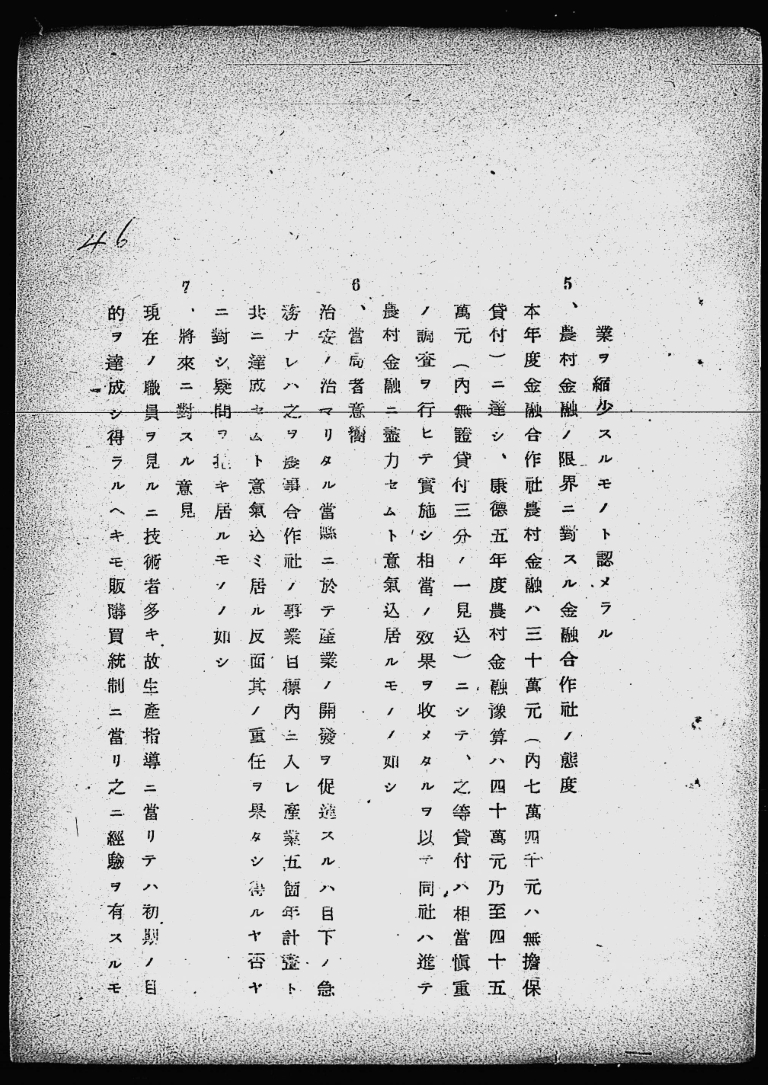 業ヲ縮少スルモノト認メラル
5、農村金融ノ限界ニ對スル金融合作社ノ態度
本年度金融合作社農村金融ハ三十萬元(內七萬四千元ハ無擔保
貸付)ニ達シ、康德五年度農村金融豫算ハ四十萬元乃至四十五
萬元(內無證貸付三分ノ一見込)ニシテ、之等貸付ハ相當愼重
ノ調査ヲ行ヒテ實施シ相當ノ效果ヲ收メタルヲ以テ同社ハ進テ
農村金融ニ盡力セムト意氣込居ルモノノ如シ
6、當局者意嚮
治安ノ治マリタル當縣ニ於テ產業ノ開發ヲ促進スルハ目下ノ急
務ナレハ之ヲ農事合作社ノ事業目標內ニ入レ產業五箇年計畫ト
共ニ達成セムト意氣込ミ居ル反面其ノ重任ヲ果タシ得ルヤ否ヤ
ニ對シ疑問ヲ抱キ居ルモノノ如シ
7、將來ニ對スル意見
現在ノ職員ヲ見ルニ技術者多キ故生產指導ニ當リテハ初期ノ目
的ヲ達成シ得ラルヘキモ販購買統制ニ當リ之ニ經驗ヲ有スルモ
46